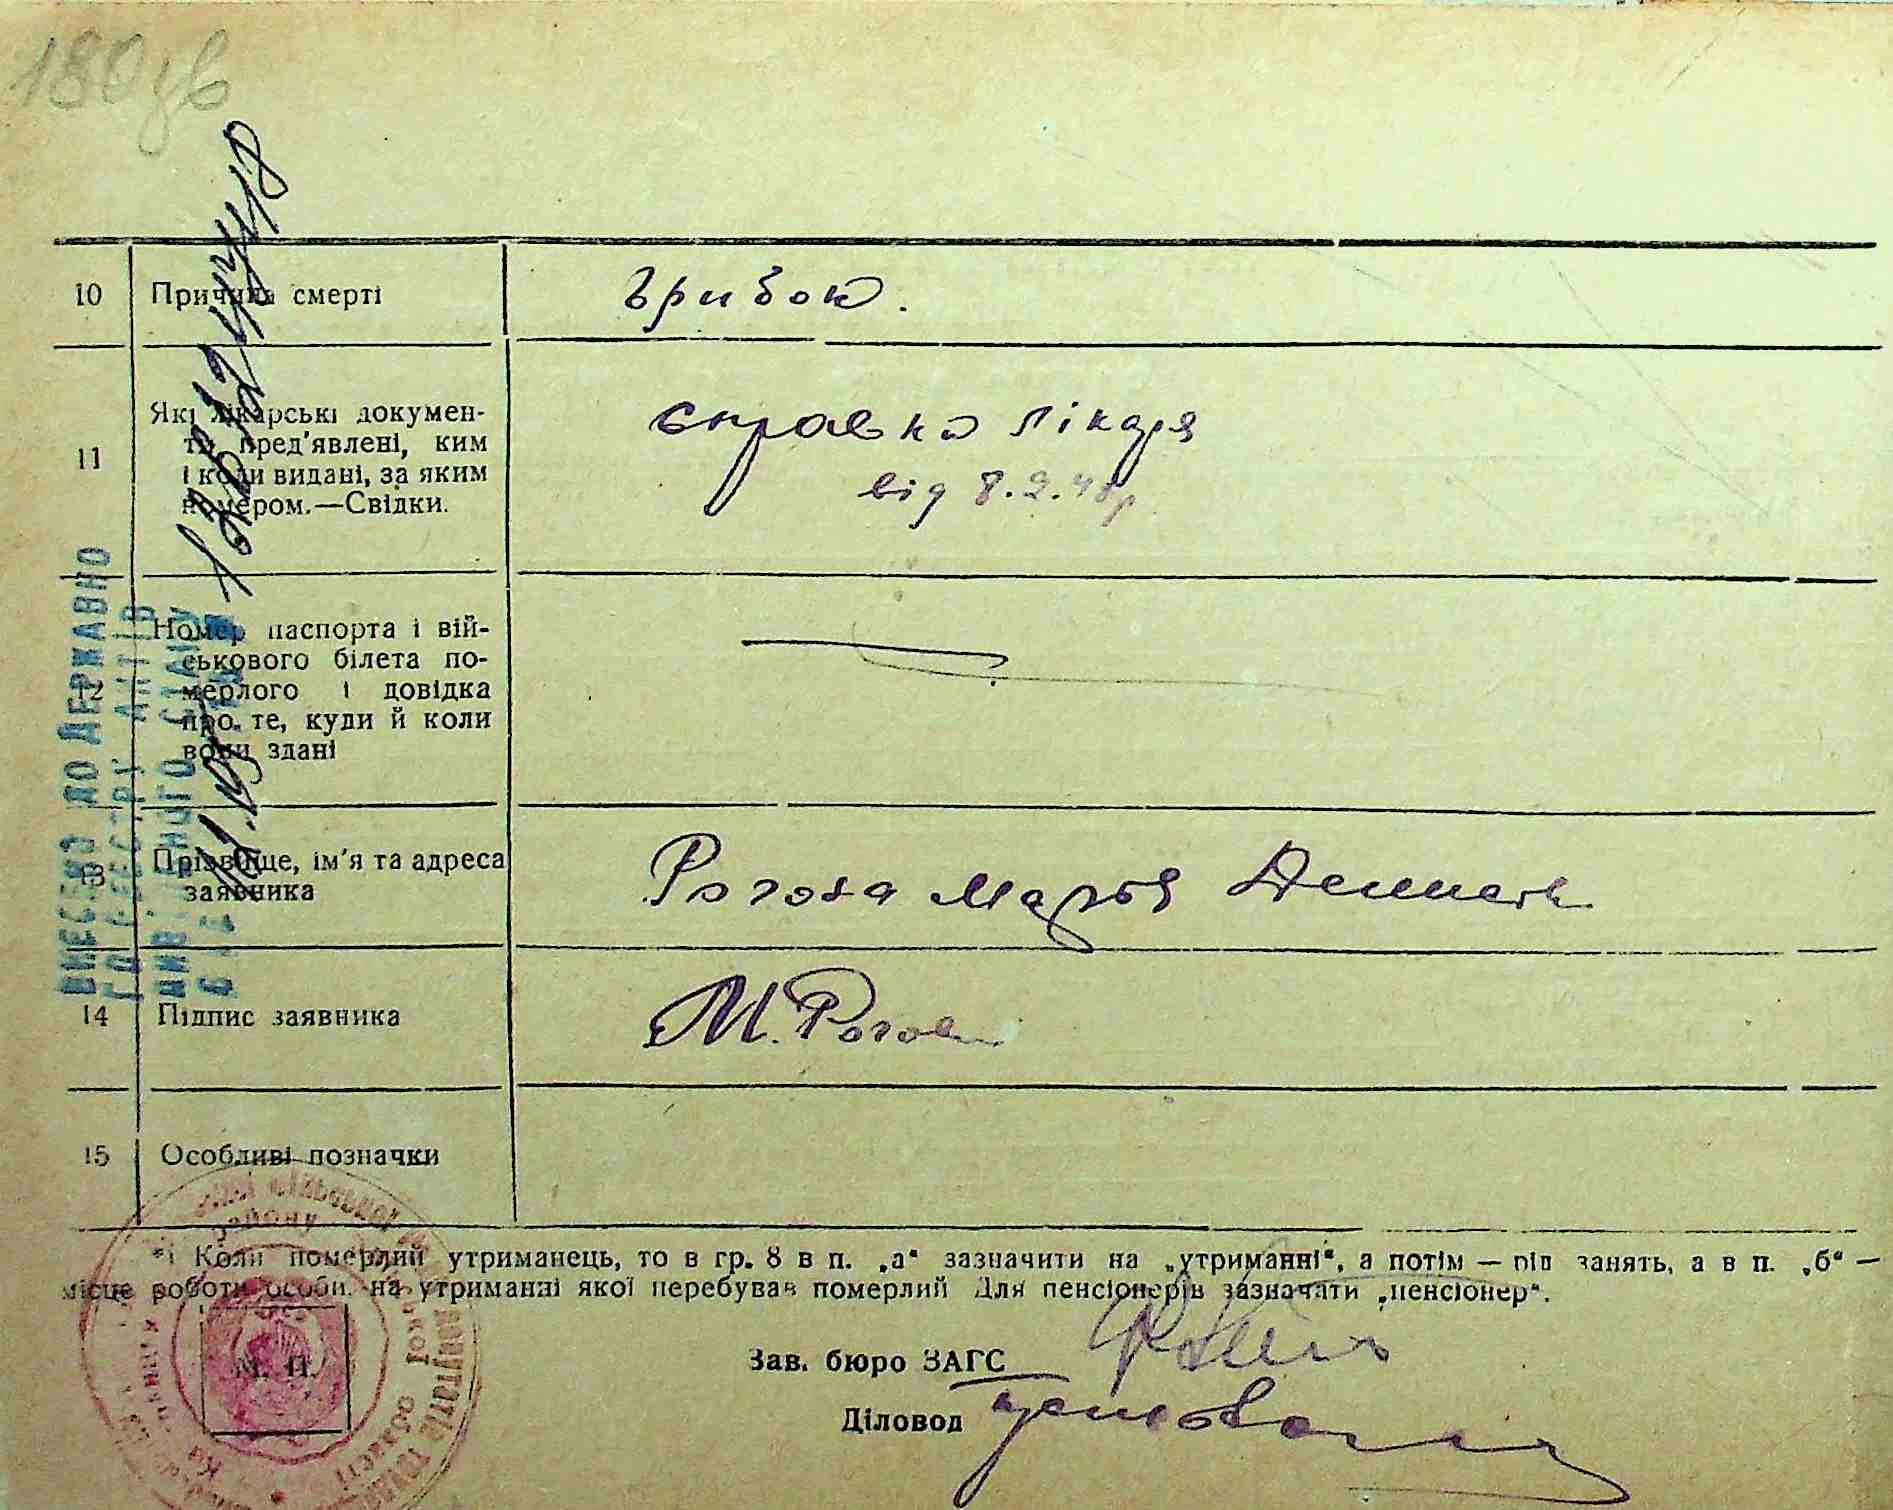 180 зв
10 Причина смерті
грибою.
11 Які лікарські докумен-
ти пред'явлені, ким
і коли видані, за яким
номером.—Свідки.
справка лікаря
від 8.2.48р
12 Номер паспорта і вій-
ськового білета по-
мерлого і довідка
про те, куди й коли
вони здані
13 Прізвище, ім'я та адреса
заявника
Рогова Марія
14 Підпис заявника
М. Рогов
15 Особливі позначки
*) Коли померлий утриманець, то в гр. 8 в п. „а“ зазначити на „утриманні“, а потім — рід занять, а в п. „б“ —
місце роботи особи, на утриманні якої перебував померлий Для пенсіонерів зазначати „пенсіонер“.
Зав. бюро ЗАГС
Діловод
М. П.
ВНЕСЕНО ДО ДЕРЖАВНО
ГО РЕЄСТРУ АКТІВ
ЦИВІЛЬНОГО СТАНУ